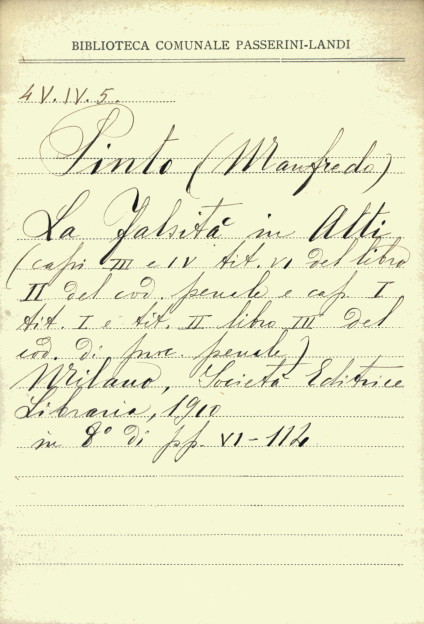 BIBLIOTECA COMUNALE PASSERINI-LANDI
4 V. IV. 5.
Pinto (Manfredo)
La Falsità in Atti
(capi III e IV tit. VI del libro
II del cod. penale e cap. I
tit. I e tit. II libro III del
cod. di proc. penale)
Milano, Società Editrice
Libraria, 1910
in 8º di pp. VI-112